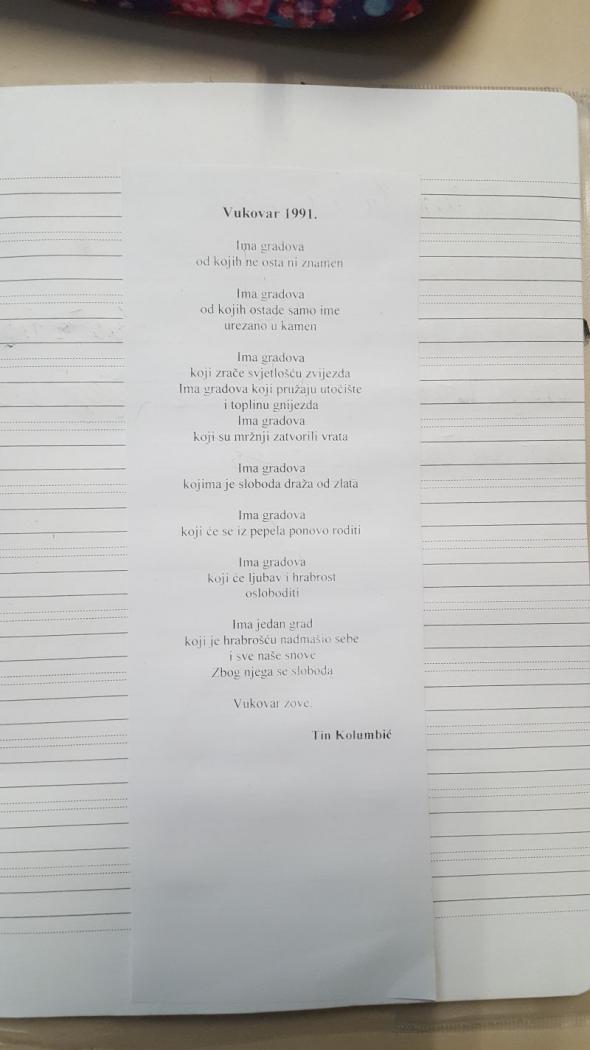 Vukovar 1991.
Ima gradova
od kojih ne osta ni znamen
Ima gradova
od kojih ostade samo ime
urezano u kamen
Ima gradova
koji zrače svjetlošću zvijezda
Ima gradova koji pružaju utočište
i toplinu gnijezda
Ima gradova
koji su mržnji zatvorili vrata
Ima gradova
kojima je sloboda draža od zlata
Ima gradova
koji će se iz pepela ponovo roditi
Ima gradova
koji će ljubav i hrabrost
osloboditi
Ima jedan grad
koji je hrabrošću nadmašio sebe
i sve naše snove
Zbog njega se sloboda
Vukovar zove.
Tin Kolumbić